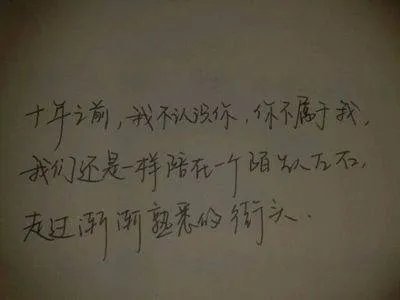 十年之前，我不认识你，你不属于我，
我们还是一样陪在一个陌生人左右，
走过渐渐熟悉的街头．